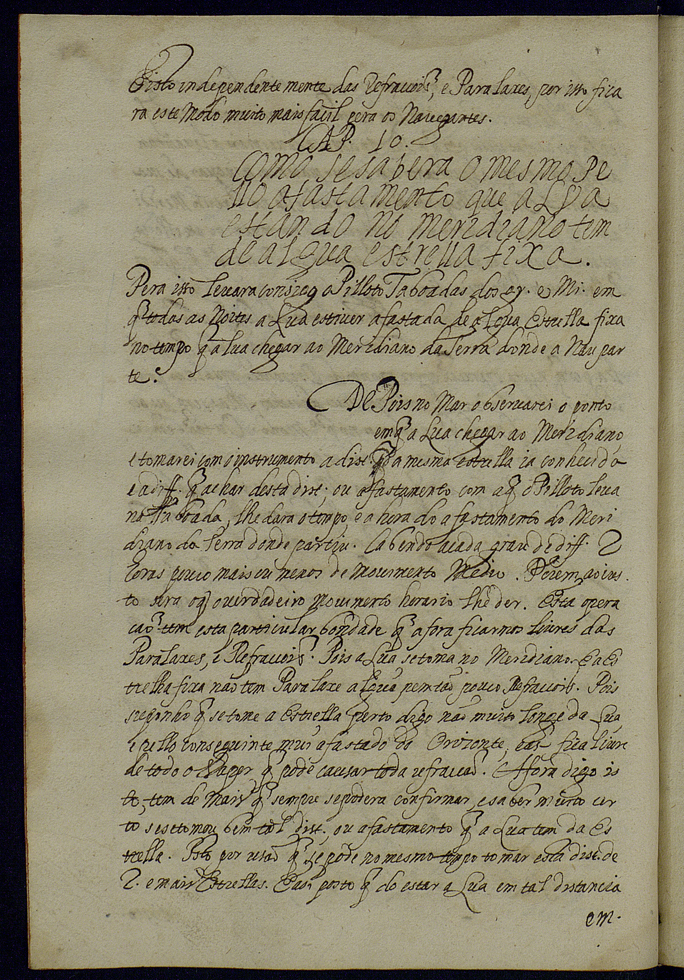 Visto independente mente das Refraçois, e Paralaxes, por isto fica
ra este Modo muito mais facil pera os Navegantes.
CAP. 10.
Como se sabera o mesmo pe
llo afastamento que a Lva
estando no meridiano tem
de algua estrella fixa.
Pera isto levara consigo o Pilloto Taboadas dos gr. e Mi. em
q̃ todas as Noites a Lua estiver afastada de algua Estrella fixa
no tempo q̃ a lua chegar ao Meridiano da Terra donde a Nau par
te.
De Pois no Mar observarei o ponto
em q̃ a Lua chegar ao Meridiano,
e tomarei com o instrumento a dist. da mesma Estrella ia conhecida
e a diff. q̃ achar desta dist. ou afastamento com a q̃ o Pilloto leva
na Taboada, lhe dara o tempo e a hora do afastamento do Meri
diano da Terra donde partiu. Cabendo a cada grau de diff. 2
horas pouco mais ou menos de Movimento Medio. Porem ao ius
to sera o q̃ o verdadeiro Movimento horario lhe der. Esta opera
cao tem esta particular bondade q̃ a fora ficarmos livres das
Paralaxes, e Refraçois. Pois a Lua se toma no Meridiano. E a Es
trella fixa não tem Paralaxe algua, nem tao pouco Refraçois. Pois
suponho q̃ se tome a Estrella perto digo não muito longe da Lua
e pello conseguinte, mui afastado do Orizonte, e asi fica livre
de todo o Vapor, q̃ pode causar toda refracao. Afora digo is
to, tem de Mais q̃ sempre se podera confirmar, e saber muito cer
to se se tomou bem tal dist. ou afastamento q̃ a Lua tem da Es
trella. Isto por rezão q̃ se pode no mesmo tempo tomar esta dist. de
2. e mais Estrellas. E asi posto q̃ do estar a Lua em tal distancia
em.